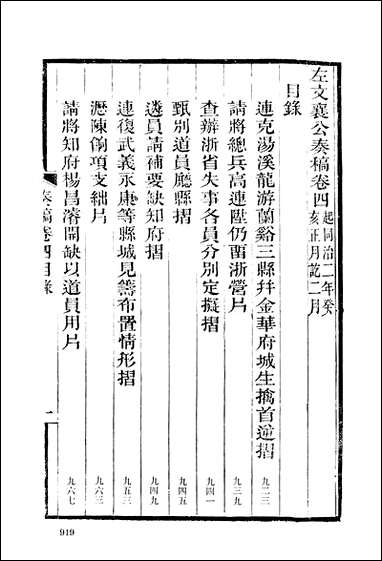 左文襄公奏稿卷四起同治二年癸亥正月訖二月
目錄
連克湯溪龍游蘭谿三縣幷金華府城生擒首逆摺 九二三
請將總兵高連陞仍留浙營片 九三九
查辦浙省失事各員分別定擬摺 九四一
甄別道員廳縣摺 九四五
遴員請補要缺知府摺 九四九
連復武義永康等縣城見籌布置情形摺 九五三
瀝陳餉項支絀片 九六三
請將知府楊昌濬開缺以道員用片 九六七
奏稿卷四目錄 一
919